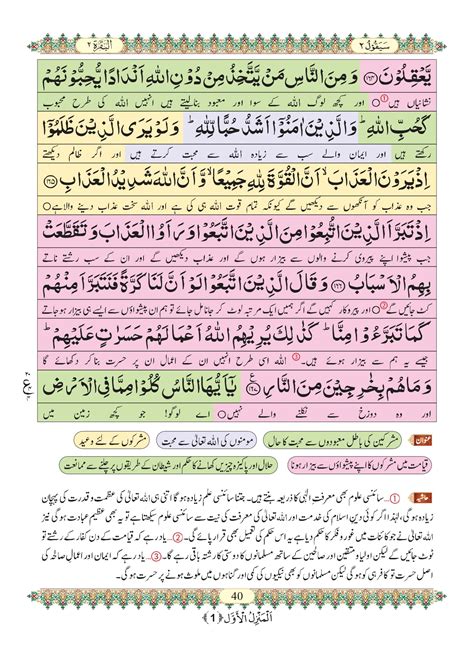 سَيَقُولُ ٢
اَلْبَقَرَة ٢
يَّعْقِلُوْنَ ﴿۱۶۴﴾ وَ مِنَ النَّاسِ مَنْ يَّتَّخِذُ مِنْ دُوْنِ اللّٰهِ اَنْدَادًا يُّحِبُّوْنَهُمْ
نشانیاں ہیں ① اور کچھ لوگ اللہ کے سوا اور معبود بنالیتے ہیں انہیں اللہ کی طرح محبوب
كَحُبِّ اللّٰهِ ؕ وَ الَّذِيْنَ اٰمَنُوْۤا اَشَدُّ حُبًّا لِّلّٰهِ ؕ وَ لَوْ يَرَى الَّذِيْنَ ظَلَمُوْۤا
رکھتے ہیں اور ایمان والے سب سے زیادہ اللہ سے محبت کرتے ہیں اور اگر ظالم دیکھتے
اِذْ يَرَوْنَ الْعَذَابَ ۙ اَنَّ الْقُوَّةَ لِلّٰهِ جَمِيْعًا ۙ وَّ اَنَّ اللّٰهَ شَدِيْدُ الْعَذَابِ ﴿۱۶۵﴾
جب وہ عذاب کو آنکھوں سے دیکھیں گے کیونکہ تمام قوت اللہ ہی کی ہے اور اللہ سخت عذاب دینے والا ہے
اِذْ تَبَرَّاَ الَّذِيْنَ اتُّبِعُوْا مِنَ الَّذِيْنَ اتَّبَعُوْا وَ رَاَوُا الْعَذَابَ وَ تَقَطَّعَتْ
جب پیشوا اپنے پیروی کرنے والوں سے بیزار ہوں گے اور عذاب دیکھیں گے اور ان کے سب رشتے ناتے
بِهِمُ الْاَسْبَابُ ﴿۱۶۶﴾ وَ قَالَ الَّذِيْنَ اتَّبَعُوْا لَوْ اَنَّ لَنَا كَرَّةً فَنَتَبَرَّاَ مِنْهُمْ
کٹ جائیں گے ② اور پیروکار کہیں گے اگر ہمیں ایک مرتبہ لوٹ کر جانا مل جائے تو ہم ان پیشواؤں سے ایسے ہی بیزار ہوجاتے
كَمَا تَبَرَّءُوْا مِنَّا ؕ كَذٰلِكَ يُرِيْهِمُ اللّٰهُ اَعْمَالَهُمْ حَسَرٰتٍ عَلَيْهِمْ ؕ
جیسے یہ ہم سے بیزار ہوئے ہیں۔ ③ اللہ اسی طرح انہیں ان کے اعمال ان پر حسرت بناکر دکھائے گا
وَ مَا هُمْ بِخٰرِجِيْنَ مِنَ النَّارِ ﴿۱۶۷﴾ ع يٰۤاَيُّهَا النَّاسُ كُلُوْا مِمَّا فِي الْاَرْضِ
اور وہ دوزخ سے نکلنے والے نہیں اے لوگو! جو کچھ زمین میں
عنوان مشرکین کی باطل معبودوں سے محبت کا حال مومنوں کی اللہ تعالیٰ سے محبت مشرکوں کے لئے وعید
قیامت میں مشرکوں کا اپنے پیشواؤں سے بیزار ہونا حلال اور پاکیزہ چیزیں کھانے کا حکم اور شیطان کے طریقوں پر چلنے سے ممانعت
حاشیہ ①... سائنسی علوم بھی معرفتِ الٰہی کا ذریعہ بنتے ہیں۔ جتنا سائنسی علم زیادہ ہوگا اتنی ہی اللہ تعالیٰ کی عظمت و قدرت کی پہچان
زیادہ ہوگی، لہٰذا اگر کوئی دینِ اسلام کی خدمت اور اللہ تعالیٰ کی معرفت کی نیت سے سائنسی علوم سیکھتا ہے تو یہ بھی عظیم عبادت ہوگی نیز
اللہ تعالیٰ نے جو کائنات میں غور و فکر کا حکم دیا ہے یہ اس حکم کی تعمیل بھی قرار پائے گی۔ ②... یاد رہے کہ قیامت کے دن کفار کے رشتے تو
ٹوٹ جائیں گے لیکن اولیا و متقین اور صالحین کے ساتھ مسلمانوں کا دوستی کا رشتہ باقی رہے گا۔ ③... یاد رہے کہ ایمان اور اعمالِ صالحہ کی
اصل حسرت تو کافر ہی کو ہوگی لیکن مسلمانوں کو بھی نیکیوں کی کمی اور گناہوں میں ملوث ہونے پر حسرت ہوگی۔
40
اَلْمَنْزِلُ الْاَوَّل ﴿ 1 ﴾